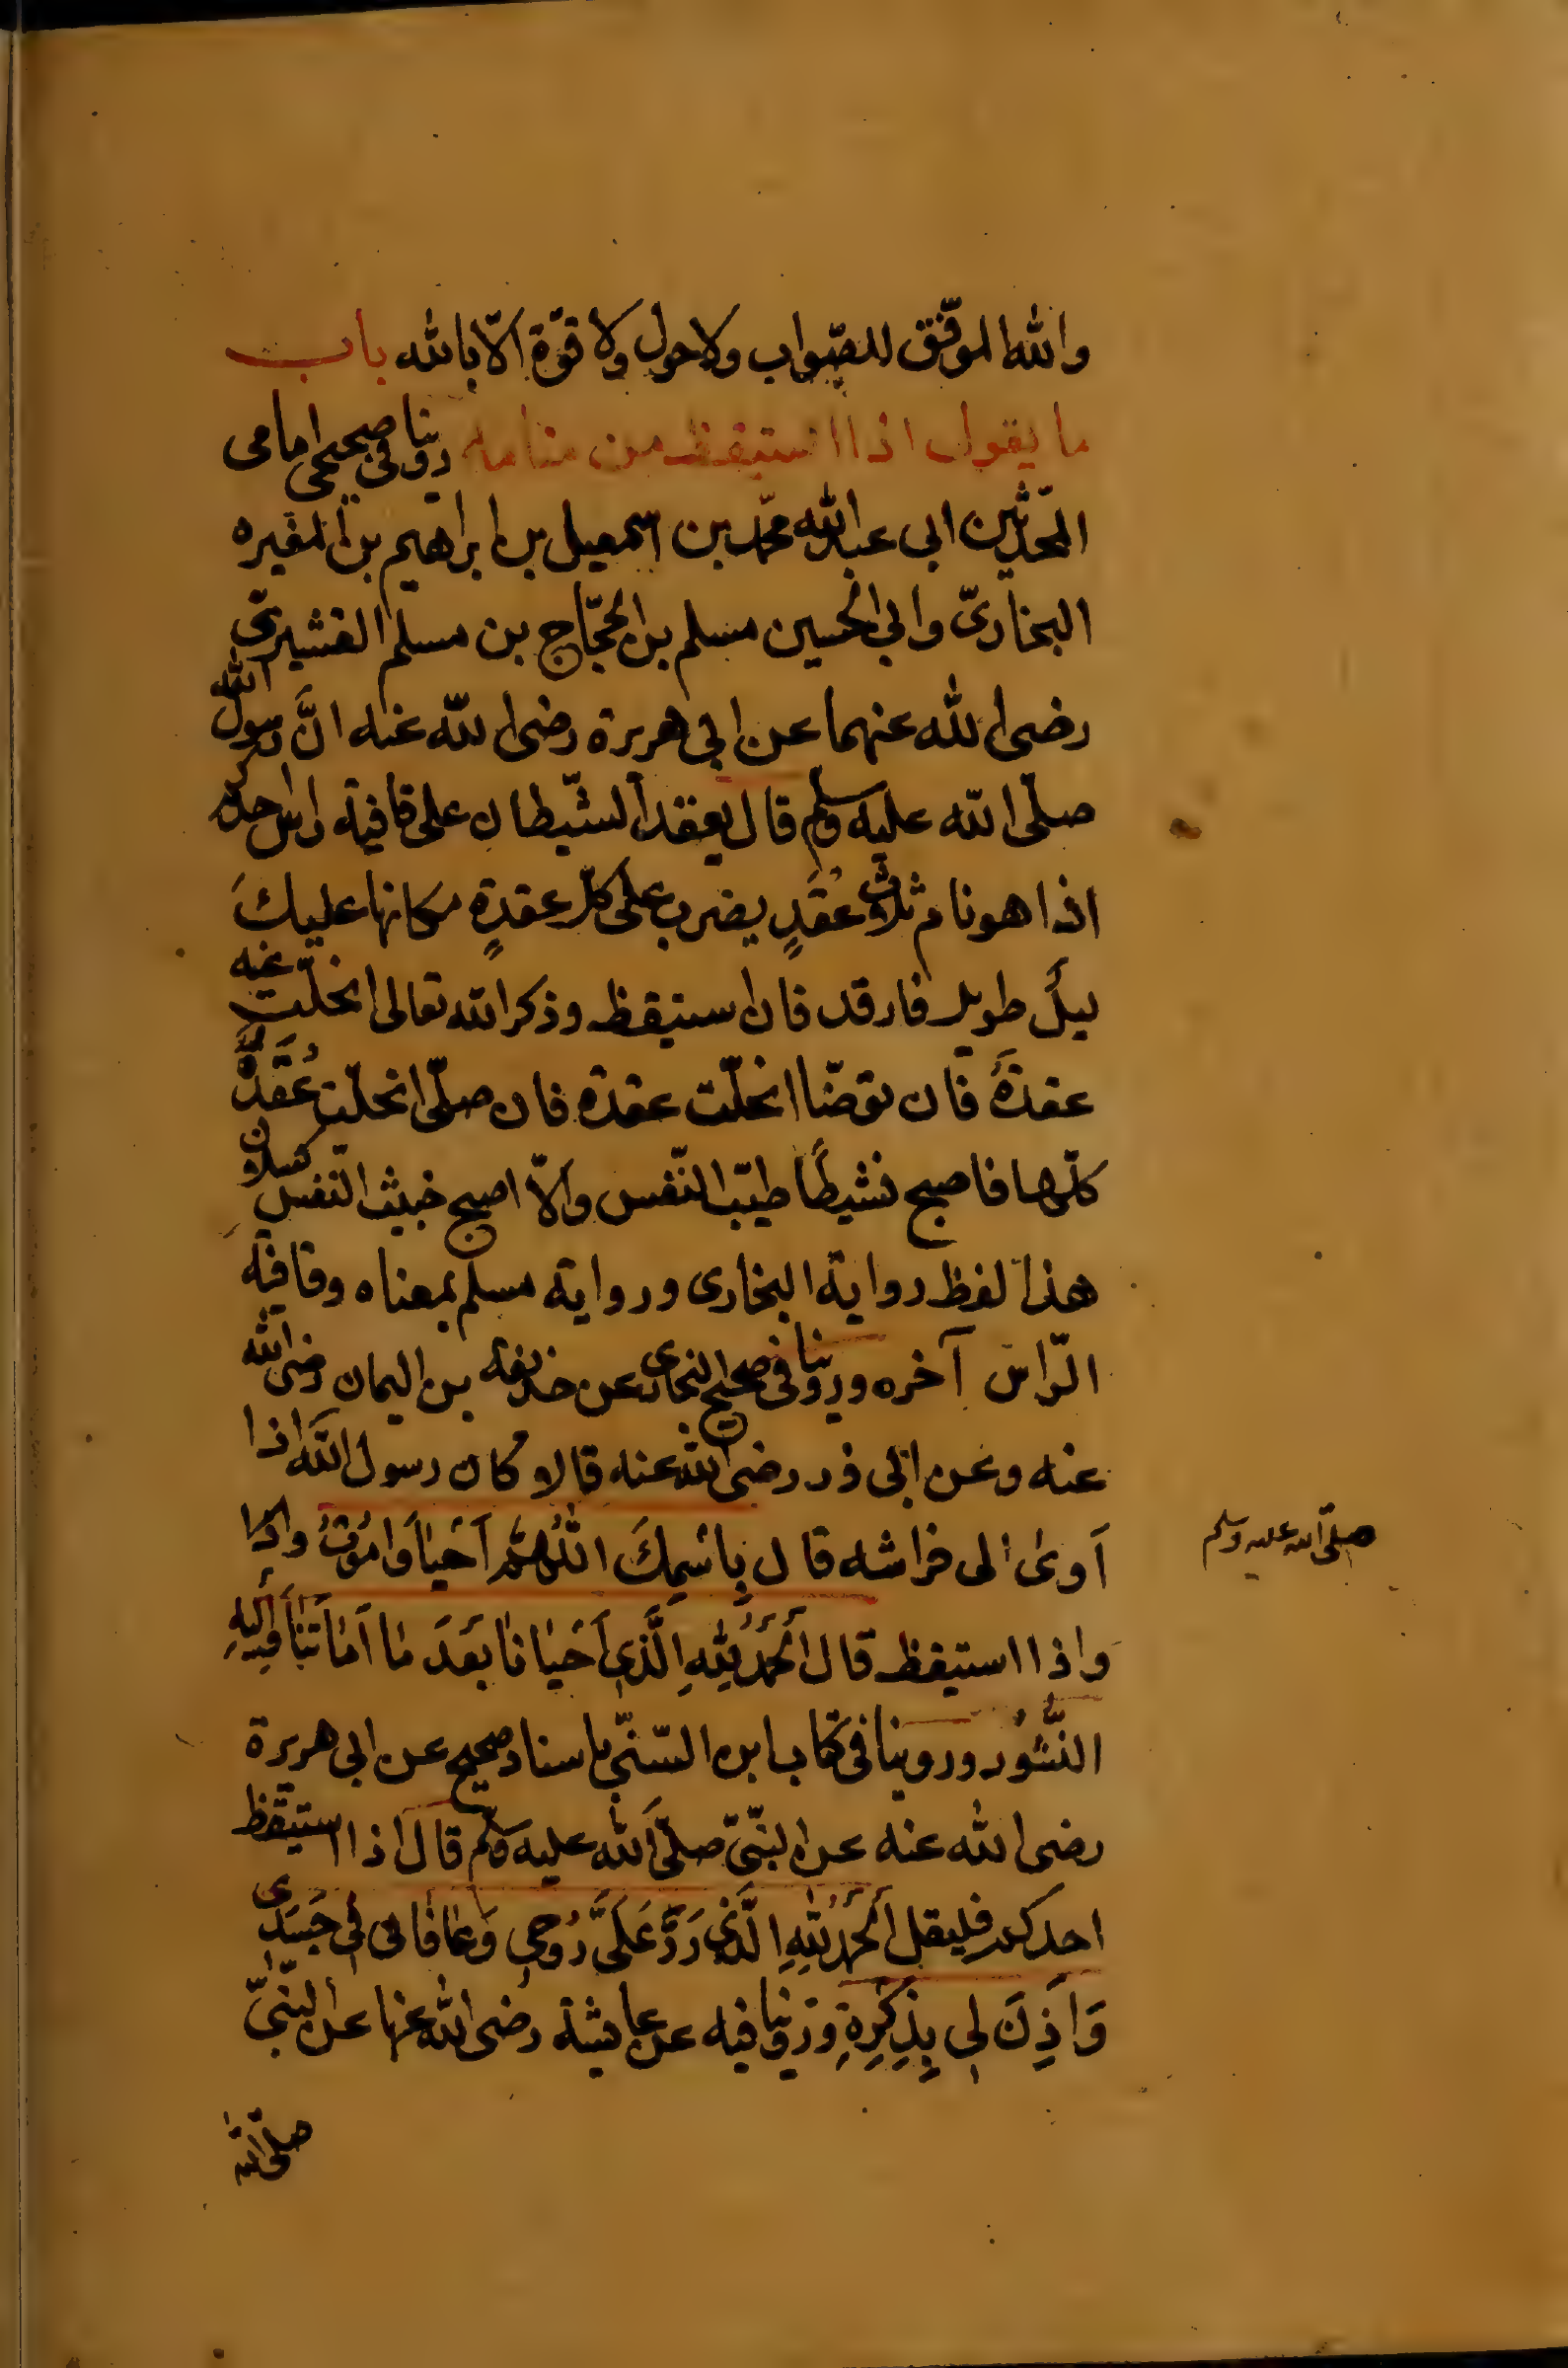 والله الموفّق للصّواب ولا حول ولا قوّة الّا بالله باب
ما يقول اذا استيقظ من منامه روينا فى صحيحى امامى
المحدّثين ابى عبد الله محمّد بن اسمعيل بن ابراهيم بن المغيره
البخارىّ وابى الحسين مسلم بن الحجّاج بن مسلم القشيرىّ
رضى الله عنهما عن ابى هريرة رضى الله عنه انَّ رسول الله
صلّى الله عليه وسلم قال يعقد الشّيطان على قافية راس احدكم
اذا هو نام ثلاث عُقَدٍ يضرب على كلّ عقدةٍ مكانها عليكَ
ليلٌ طويل فارقد فان استيقظ وذكر الله تعالى انحلّت عنه
عقدةٌ فان توضّا انحلّت عقدة فان صلّى انحلّت عُقَدُهُ
كلّها فاصبح نشيطًا طيّب النّفس والاّ اصبح خبيث النّفس كسلان
هذا لفظ رواية البخارى ورواية مسلم بمعناه وقافية
الرّاس آخره وروينا فى صحيح البخارى عن حذيفة بن اليمان رضى الله
عنه وعن ابى ذر رضى الله عنه قالا كان رسول الله اذا
صلّى الله عليه وسلم
اَوىٰ الى فراشه قال بِاسْمِكَ اللّٰهُمَّ اَحْيَا وَاَمُوتُ واذا
واذا استيقظ قال اَلْحَمْدُ لِلّٰهِ الَّذِى اَحْيَانَا بَعْدَ مَا اَمَاتَنَا وَاِلَيْهِ
النُّشُور وروينا فى كتاب ابن السّنّى باسناد صحيح عن ابى هريرة
رضى الله عنه عن النبّىّ صلّى الله عليه وسلم قال اذا استيقظ
احدكم فليقل اَلْحَمْدُ لِلّٰهِ الَّذِى رَدَّ عَلَىَّ رُوحِى وَعَافَانِى فِى جَسَدِى
وَاَذِنَ لِى بِذِكْرِهِ وروينا فيه عن عايشة رضى الله عنها عن النّبىّ
صلّى الله